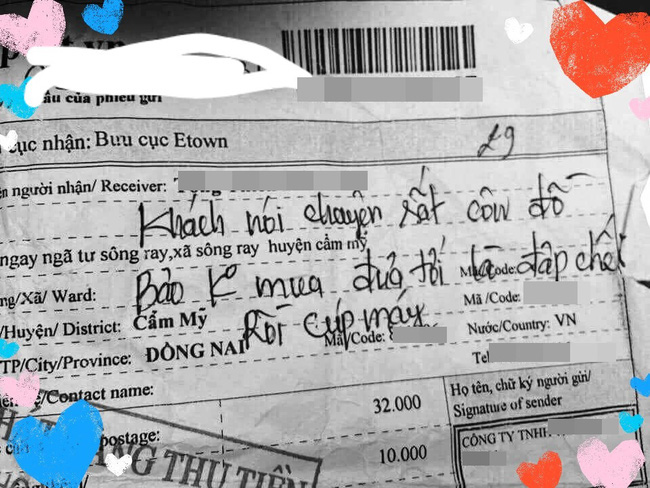 ấu của phiếu gửi
cục nhận: Bưu cục Etown
29
ện người nhận/ Receiver:
Khách nói chuyện rất côn đồ
ngay ngã tư sông ray,xã sông ray huyện cẩm mỹ
ng/Xã/ Ward: Bảo K mua đưa tới là đập chết ! Mã/Code:
/Huyện/ District: Cẩm Mỹ Rồi cúp máy Mã /Code:
TP/City/Province: ĐỒNG NAI Mã/Code: Nước/Country: VN
Tel
/Contact name: Họ tên, chữ ký người gửi/
32.000 Signature of sender
postage: 10.000 CÔNG TY TNH
NG THU TIỀN